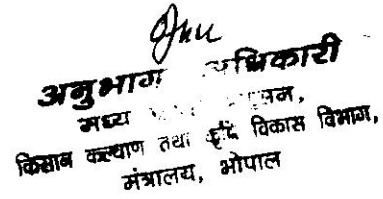 अनुभाग अधिकारी
मध्य शासन,
किसान कल्याण तथा कृषि विकास विभाग,
मंत्रालय, भोपाल